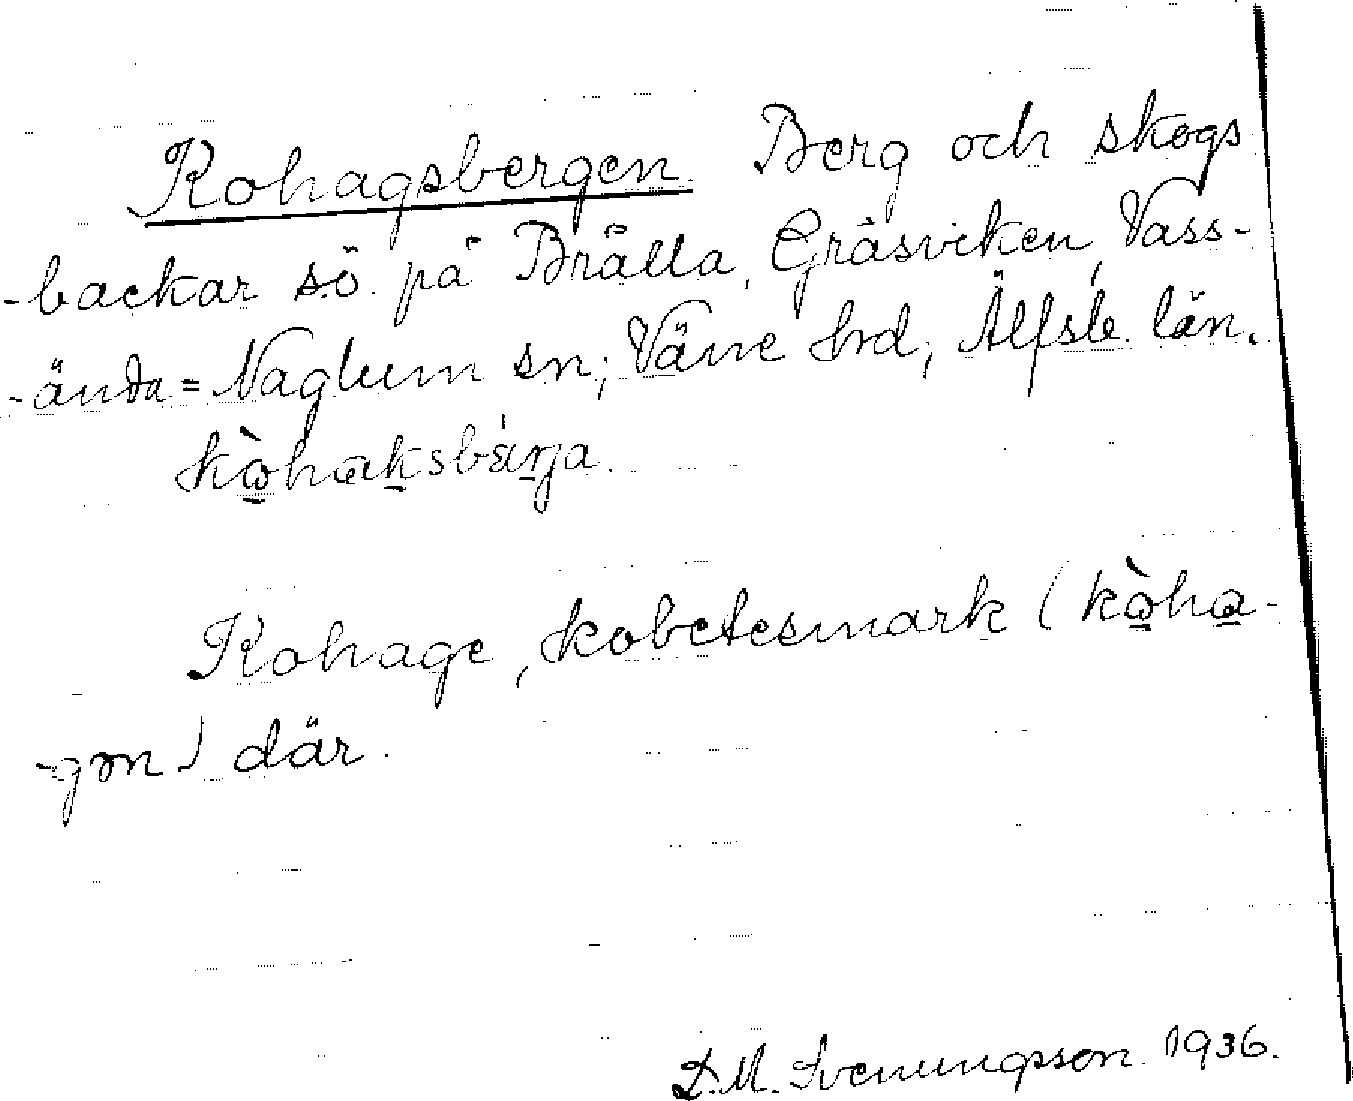 Kohagsbergen. Berg och skogs
-backar sö. på Brälla, Gräsviken, Vass-
-ända = Naglum sn; Väne hrd; Älfsb. län.
kò̱hɑḵsbárja.
Kohage, kobetesmark (kò̱hɑ̱-
-gən) där.
D.M. Svenungsson. 1936.